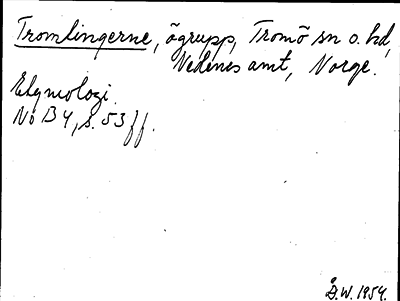 Tromlingerne, ögrupp, Tromö sn o. hd,
Nedenes amt, Norge.
Etymologi.
NoB 4, s. 53 ff.
Å.W. 1954.